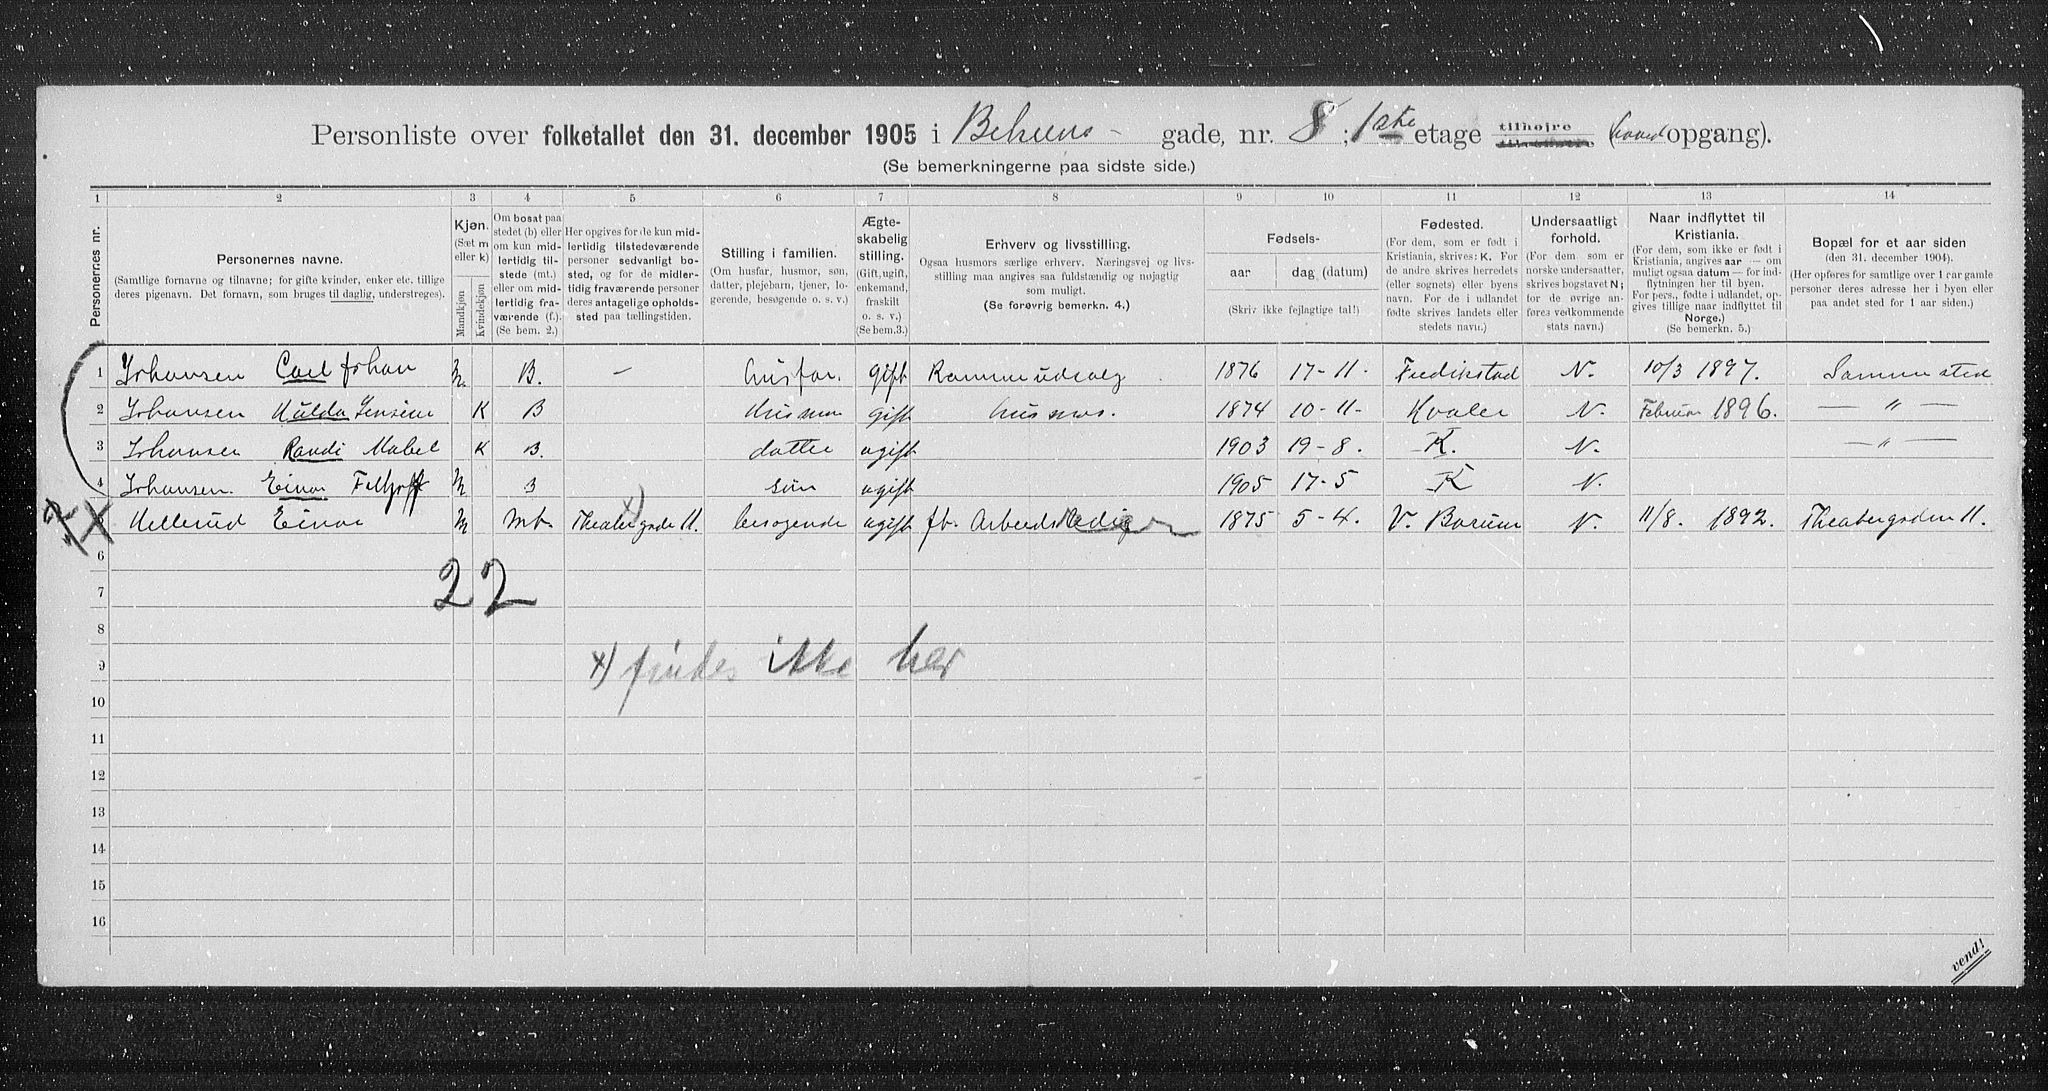 Personliste over folketallet den 31. december 1905 i Behrens- gade, nr. 8; 1ste etage tilhøjre (hovedopgang).
(Se bemerkningerne paa sidste side.)
1 2 3 4 5 6 7 8 9 10 11 12 13 14
Personernes nr.
Personernes navne.
(Samtlige fornavne og tilnavne; for gifte kvinder, enker etc. tillige
deres pigenavn. Det fornavn, som bruges til daglig, understreges).
Kjøn.
(Sæt m
eller k)
Mandkjøn
Kvindekjøn
Om bosat paa
stedet (b) eller
om kun mid-
lertidig til-
stede (mt.)
eller om mid-
lertidig fra-
værende (f.)
(Se bem. 2.)
Her opgives for de kun mid-
lertidig tilstedeværende
personer sedvanlig bo-
sted, og for de midler-
tidig fraværende personer
deres antagelige opholds-
sted paa tællingstiden.
Stilling i familien.
(Om husfar, husmor, søn,
datter, plejebarn, tjener, lo-
gerende, besøgende o. s. v.)
Ægte-
skabelig
stilling.
(Gift, ugift,
enkemand,
fraskilt
o. s. v.)
(Se bem. 3.)
Erhverv og livsstilling.
Ogsaa husmors særlige erhverv. Næringsvej og livs-
stilling maa angives saa fuldstændig og nøjagtig
som muligt.
(Se forøvrig bemerkn. 4.)
Fødsels-
aar
dag (datum)
(Skriv ikke fejlagtige tal!)
Fødested.
(For dem, som er født i
Kristiania, skrives: K. For
de andre skrives herredets
(eller sognets) eller byens
navn. For de i udlandet
fødte skrives landets eller
stedets navn.)
Undersaatligt
forhold.
(For dem som er
norske undersaatter,
skrives bogstavet N;
for de øvrige an-
føres vedkommende
stats navn.)
Naar indflyttet til
Kristiania.
(For dem, som ikke er født i
Kristiania, angives aar — om
muligt ogsaa datum — for ind-
flytningen her til byen.
For pers., fødte i udlandet, op-
gives tillige naar indflyttet til
Norge.)
(Se bemerkn. 5.)
Bopæl for et aar siden
(den 31. december 1904).
(Her opføres for samtlige over 1 aar gamle
personer deres adresse her i byen eller
paa andet sted for 1 aar siden.)
1 Johansen Carl Johan m. B. — husfar. gift 1876 17-11. Fredrikstad N. 10/3 1897. Sammested
2 Johansen Hulda Jensine K B husmor gift husmor. 1874 10-11. Hvaler N. Februar 1896. — " —
3 Johansen Randi Mabel K B. datter ugift 1903 19-8. K. N. — " —
4 Johansen. Einar m B søn ugift 1905 17-5 K N.
5 Hellerud Einar m mt. x) 11. besøgende ugift fb. 1875 5-4. V. Bærum N. 11/8. 1892. 11.
6
22
7
8
x) findes ikke her
9
10
11
12
13
14
15
16
vend!